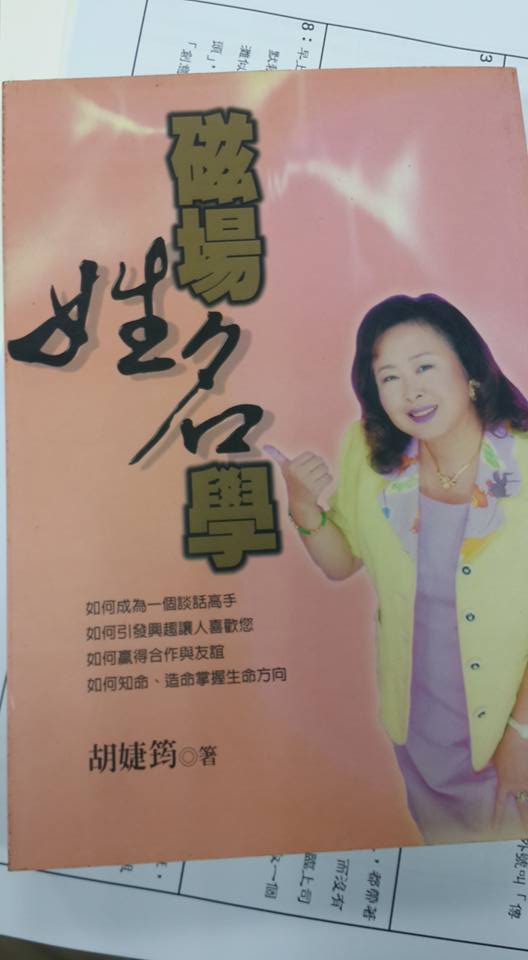 磁場姓名學
如何成為一個談話高手
如何引發興趣讓人喜歡您
如何贏得合作與友誼
如何知命、造命掌握生命方向
胡婕筠◎箸
8：早上
3